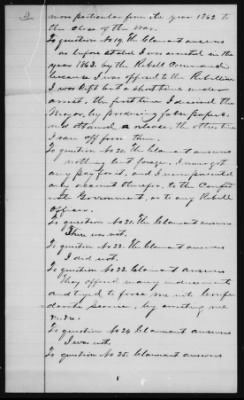 more particular from the year 1862 to
the close of the War.
To question No 19. the Claimant answers
as before stated I was arrested in the
year 1863. by the Rebell Commander
because I was opposed to the Rebellion
I was kept but a short time under
arrest, the first time I deceived the
Mayor, by producing false papers.
and obtained a release, the other time
I ran off from them.
To question No 20. the Claimant answers
nothing but forage, I never got
any pay for it, and I never presented
any account therefor, to the Confed
erate Government, or to any Rebell
Officer.
To question No 21. the Claimant answers
There was not.
To question No 22. the Claimant answers
I did not.
To question No 23. Claimant answers
They offered many inducements
and tryed to force me into Confe
derate service, by arresting me
To question No 24 Claimant answers
I was not.
To question No 25. Claimant answers